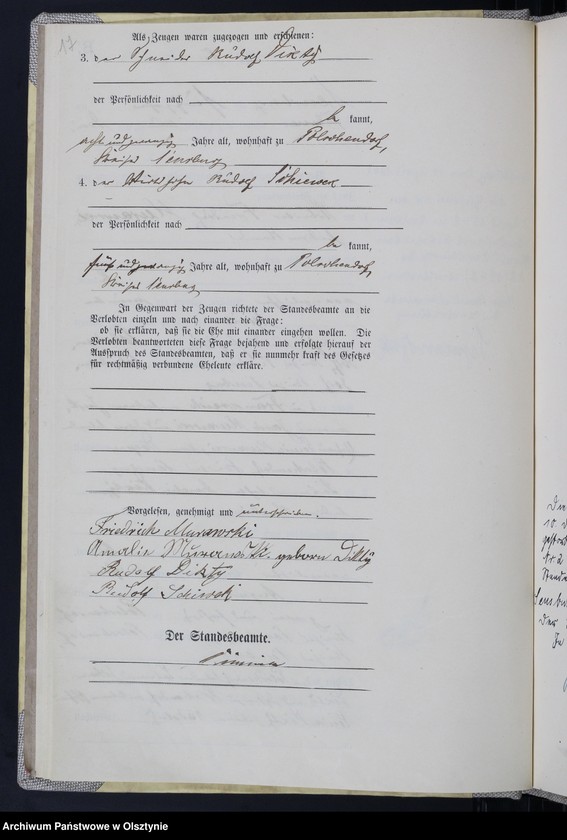 17
Als Zeugen waren zugezogen und erschienen:
3. der Schneider Rudolf Dikty
der Persönlichkeit nach
be kannt,
achtundzwanzig Jahre alt, wohnhaft zu
Kreises
4. der Rudolf
der Persönlichkeit nach
be kannt,
fünfundzwanzig Jahre alt, wohnhaft zu
Kreises
In Gegenwart der Zeugen richtete der Standesbeamte an die
Verlobten einzeln und nach einander die Frage:
ob sie erklären, daß sie die Ehe mit einander eingehen wollen. Die
Verlobten beantworteten diese Frage bejahend und erfolgte hierauf der
Ausspruch des Standesbeamten, daß er sie nunmehr kraft des Gesetzes
für rechtmäßig verbundene Eheleute erkläre.
Vorgelesen, genehmigt und unterschrieben.
Friedrich Murawski
Amalie geborn Dikty
Rudolf Dikty
Rudolf
Der Standesbeamte.
Archiwum Państwowe w Olsztynie